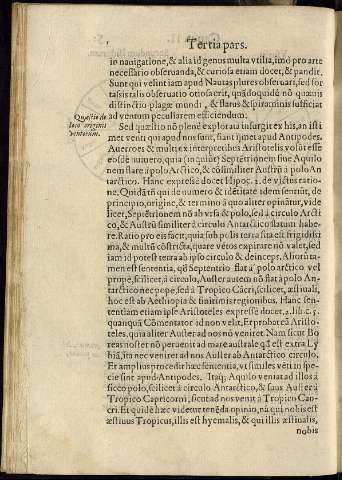 Tertia pars.
in nauigatione, & alia id genus multa vtilia, imò pro arte
necessario obseruanda, & curiosa etiam docet, & pandit.
Sunt qui velint iam apud Nautas plures obseruari, sed for
tassis talis obseruatio otiosa erit, quādoquidē nō quæuis
distinctio plagæ mundi, & flatus & spiraminis sufficiat
ad ventum peculiarem efficiendum.
Quæstio de
loco originis
ventorum.
Sed quæstio nō plenè explorata insurgit ex his, an isti
met venti qui apud nos sunt, fiant ijdem apud Antipodes.
Auerroes & multi ex interpretibus Aristotelis volūt esse
eosdē numero, quia (inquiūt) Septētrionem siue Aquilo
nem flare à polo Arctico, & cōsimiliter Austrū à polo An
tarctico. Hanc expressè docet Hipoc. 2. de victus ratio-
ne. Quidā tñ qui de numero & idētitate idem sentiūt, de
principio, origine, & termino à quo aliter opinātur, vide
licet, Septētrionem nō ab vrsa & polo, sed à circulo Arcti
co, & Austrū similiter à circulo Antarctico flatum habe-
re. Ratio pro eis facit, quia sub polis terra sita est frigidissi
ma, & multū cōstricta, quare vētos expirare nō valet, sed
iam id potest terra ab ipso circulo & deinceps. Aliorū ta-
men est sententia, qđ Septentrio flat à polo arctico vel
propè, scilicet, à circulo, Auster autem nō flat à polo An-
tarctico nec propè, sed à Tropico Cācri, scilicet, æstiuali,
hoc est ab Aethiopia & finitimis regionibus. Hanc sen-
tentiam etiam ipse Aristoteles expressè docet. 2. lib. c. 5.
quanquā Cōmentator ad non velit. Et probat eā Aristo-
teles, quia aliter Auster ad nos nō veniret. Nam sicut Bo
reas noster nō peruenit ad mare australe qđ est extra Ly
biā, ita nec veniret ad nos Auster ab Antarctico circulo,
Et amplius procedit hæc sententia, vt similes vēti in spe-
cie sint apud Antipodes. Itaq; Aquilo veniat ad illos à
suo polo, scilicet à circulo Antarctico, & suus Auster à
Tropico Capricorni, sicut ad nos venit à Tropico Can-
cri. Et quidē hæc videtur tenēda opinio, nā qui nobis est
æstiuus Tropicus, illis est hyemalis, & qui illis æstiualis,
nobis